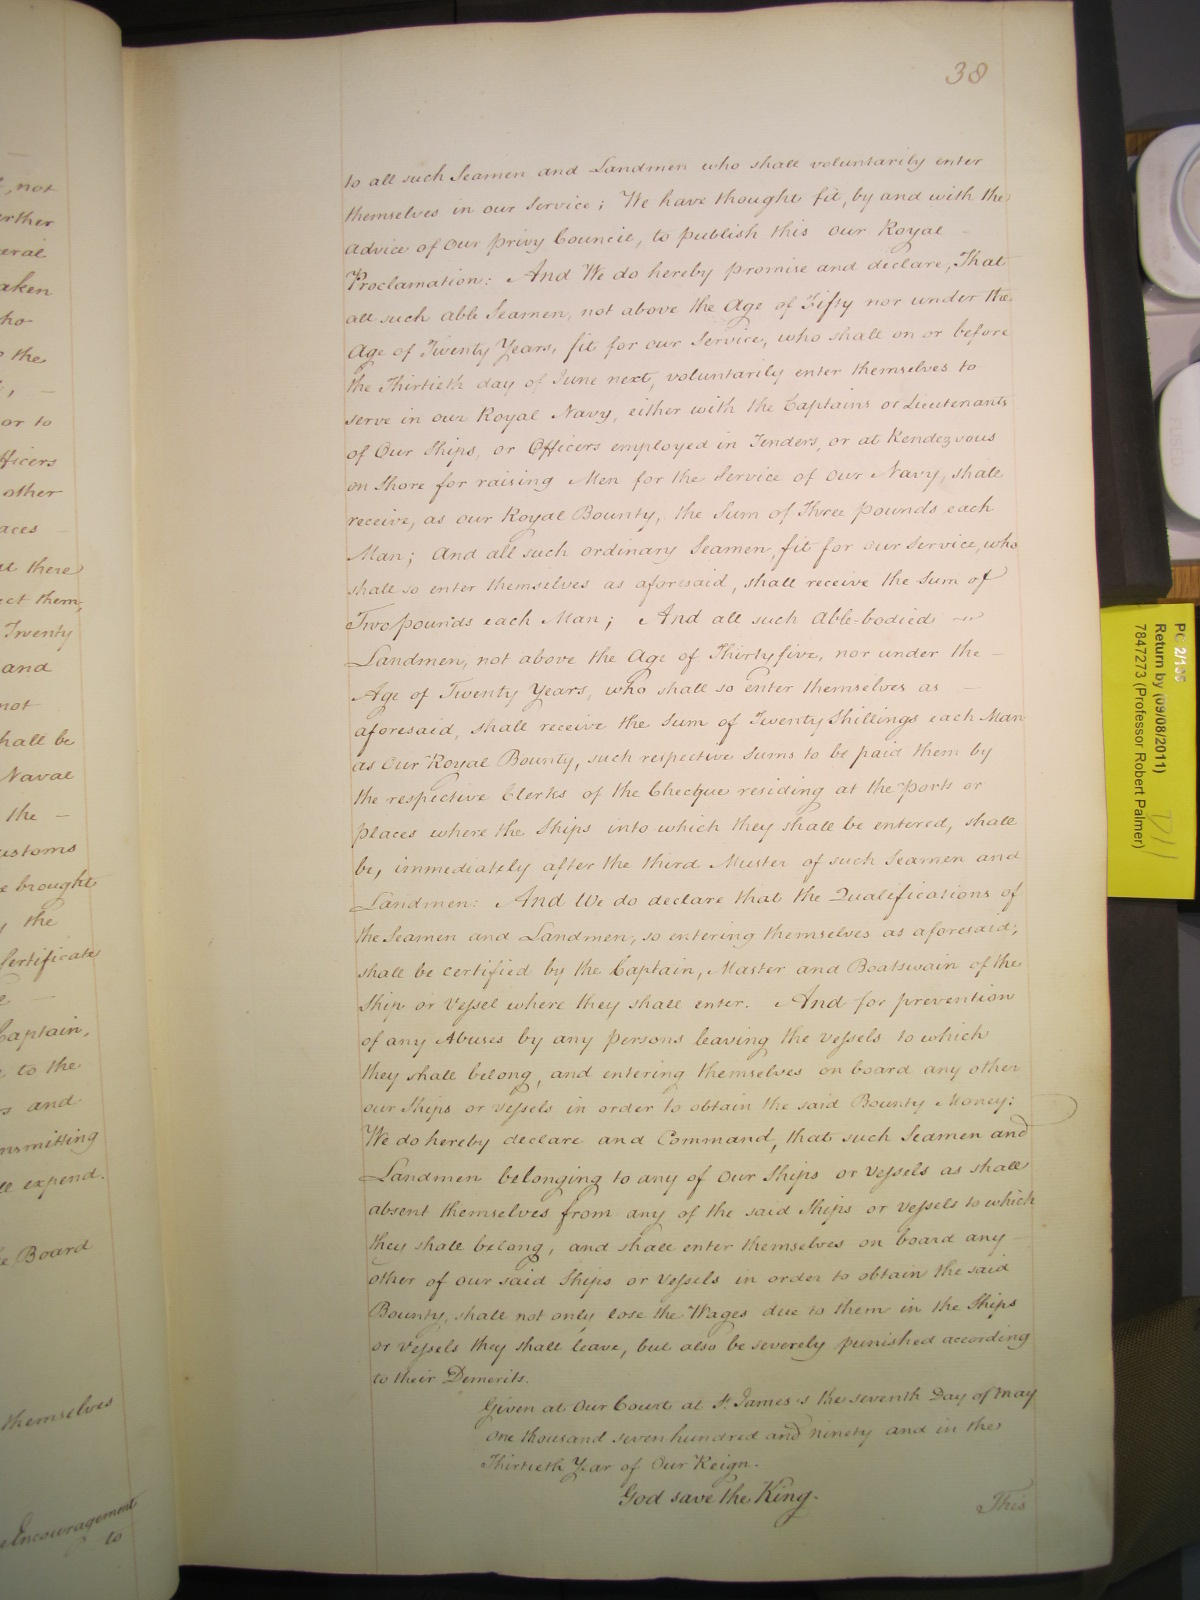 38
to all such Seamen and Landmen who shall voluntarily enter
themselves in our Service; We have thought fit, by and with the
Advice of Our privy Council, to publish this our Royal
Proclamation: And We do hereby promise and declare, That
all such able Seamen, not above the Age of Fifty nor under the
Age of Twenty Years, fit for our Service, who shall on or before
the Thirtieth day of June next, voluntarily enter themselves to
serve in our Royal Navy, either with the Captains or Lieutenants
of Our Ships, or Officers employed in Tenders, or at Rendezvous
on Shore for raising Men for the Service of our Navy, shall
receive, as our Royal Bounty, the Sum of Three pounds each
Man; And all such ordinary Seamen, fit for our Service, who
shall so enter themselves as aforesaid, shall receive the Sum of
Two pounds each Man; And all such Able-bodied
Landmen, not above the Age of Thirty five, nor under the –
Age of Twenty Years, who shall so enter themselves as –
aforesaid, shall receive the Sum of Twenty Shillings each Man
as Our Royal Bounty, such respective Sums to be paid them by
the respective Clerks of the Checque residing at the ports or
places where the Ships into which they shall be entered, shall
be, immediately after the third Muster of such Seamen and
Landmen: And We do declare that the Qualifications of
the Seamen and Landmen, so entering themselves as aforesaid,
shall be certified by the Captain, Master and Boatswain of the
Ship or Vessel where they shall enter. And for prevention
of any Abuses by any persons leaving the vessels to which
they shall belong, and entering themselves on board any other
our Ships or vessels in order to obtain the said Bounty Money:
We do hereby declare and Command, that such Seamen and
Landmen belonging to any of Our Ships or vessels as shall
absent themselves from any of the said Ships or vessels to which
they shall belong, and shall enter themselves on board any –
other of our said Ships or vessels in order to obtain the said
Bounty, shall not only lose the Wages due to them in the Ships
or vessels they shall leave, but also be severely punished according
to their Demerits.
Given at Our Court at St. James's the seventh Day of May
One thousand seven hundred and ninety and in the
Thirtieth Year of Our Reign.
God save the King.
This
not
the
or to
other
there
Twenty
and
not
shall be
Naval
the –
brought
the
Certificate
Captain,
to the
and
expend.
Board
themselves
Encouragement
to
PC 2/135
Return by (09/08/2011)
7847273 (Professor Robert Palmer)